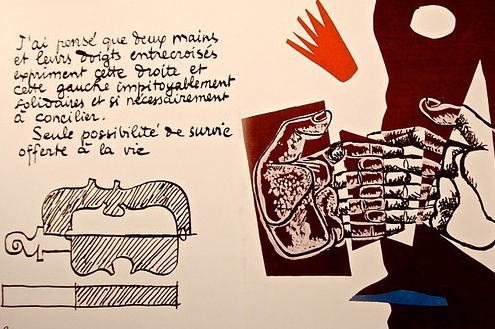 J'ai pensé que deux mains
et leurs doigts entrecroisés
expriment cette droite et
cette gauche impitoyablement
solidaires et si nécessairement
à concilier.
Seule possibilité de survie
offerte à la vie